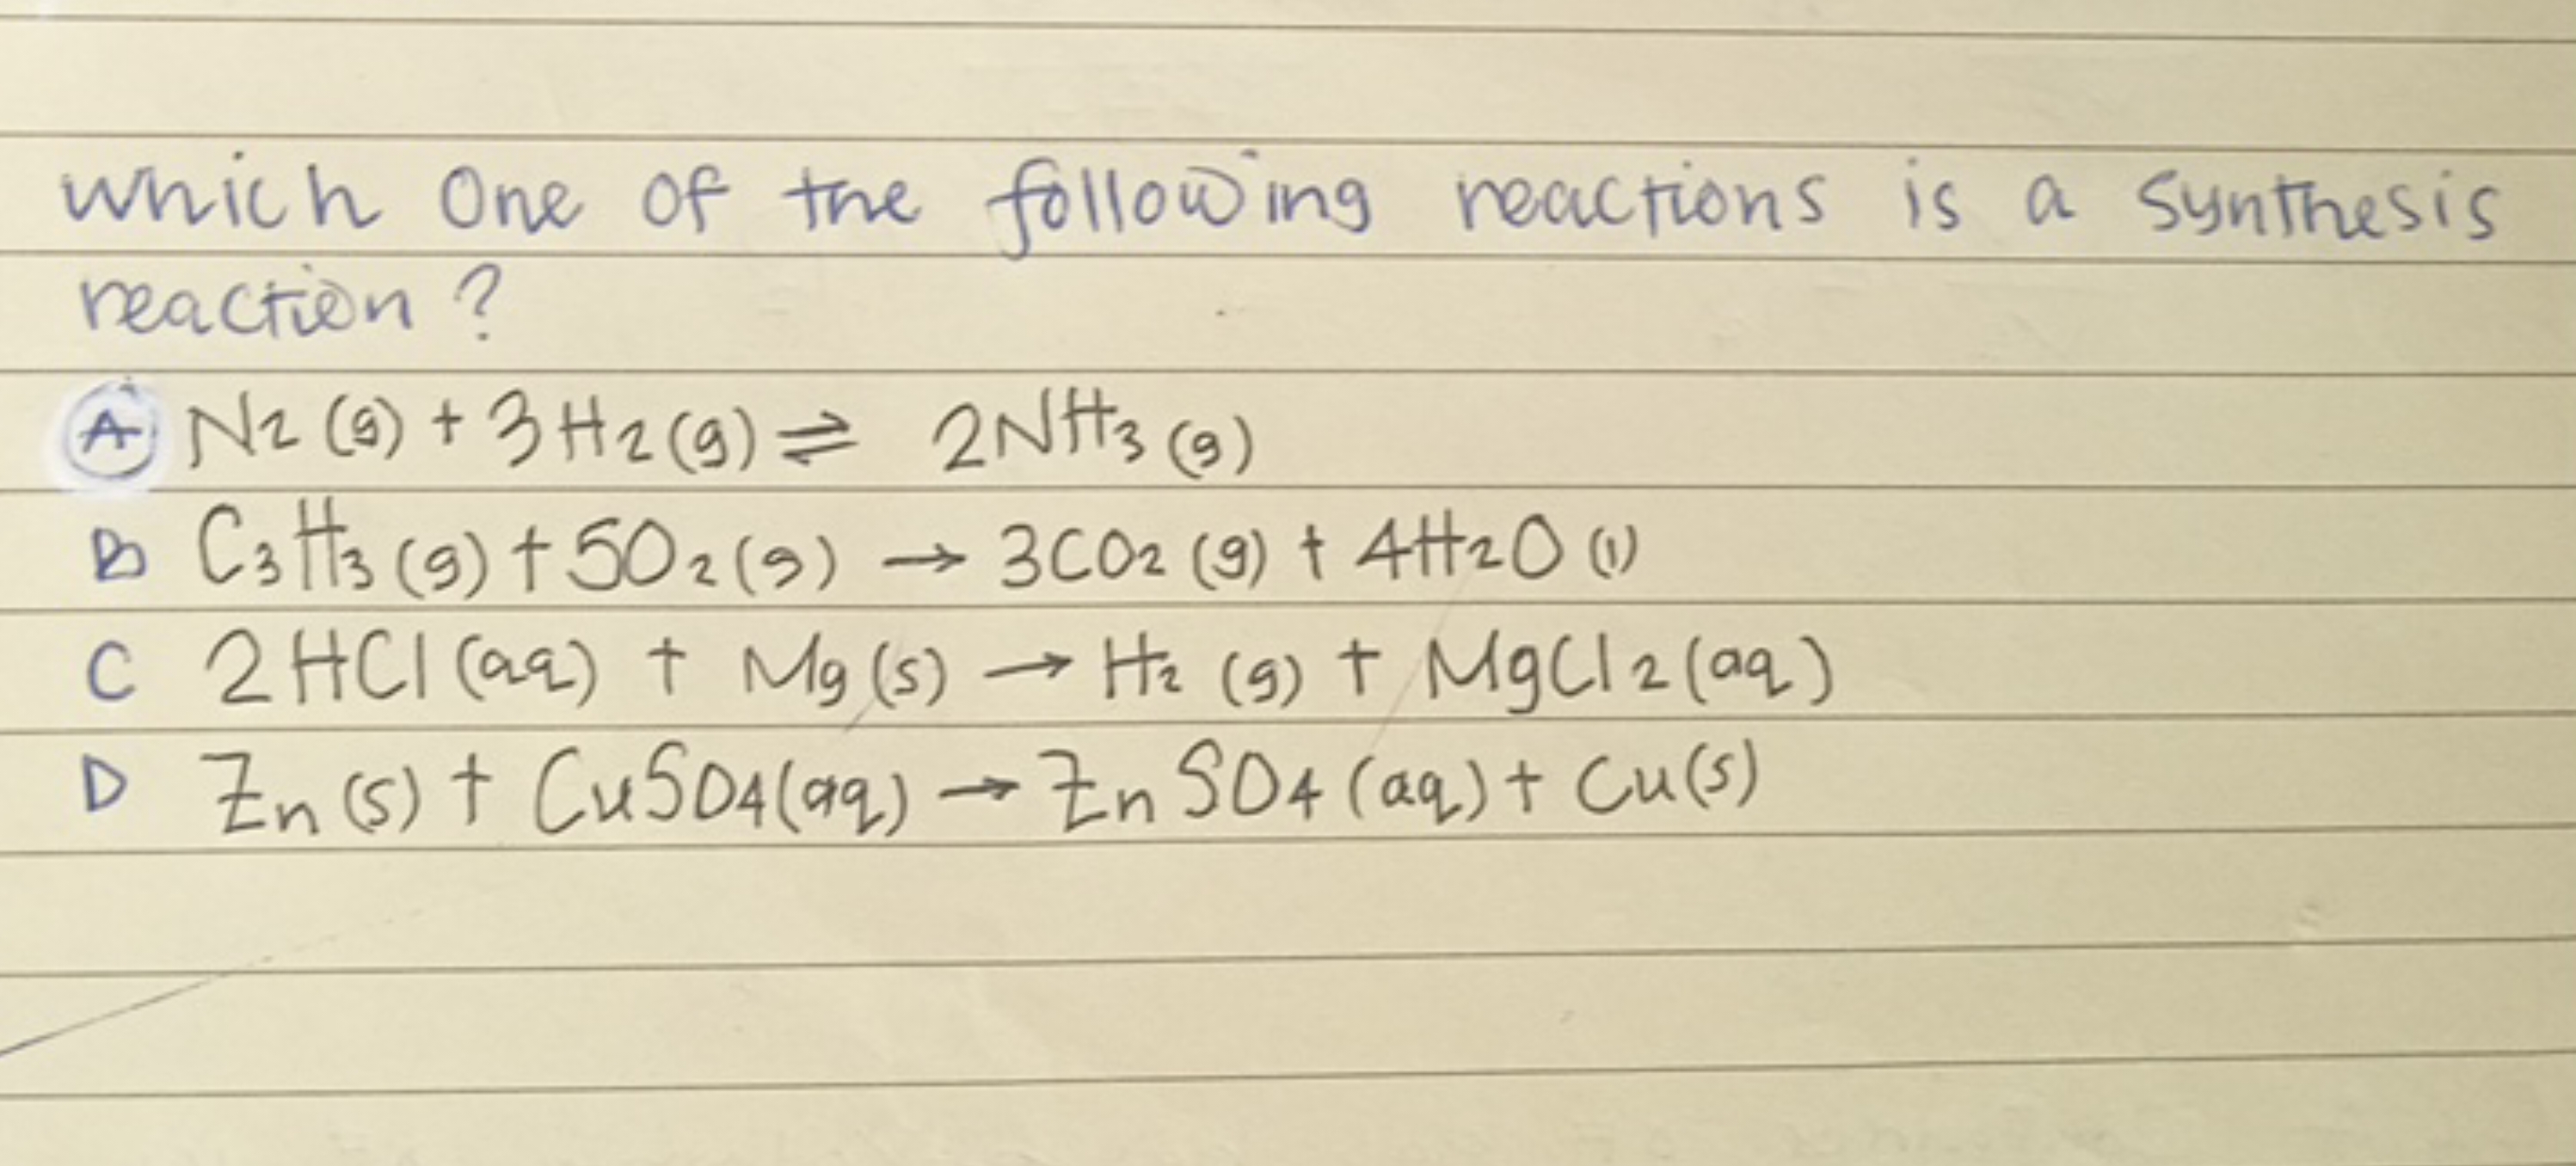 which one of the following reactions is a synthesis
reaction?
A N2 (g) + 3H2 (g) ⇌ 2NH3 (g)
B C3H3 (g) + 5O2 (g) → 3CO2 (g) + 4H2O (l)
C 2HCl (aq) + Mg (s) → H2 (g) + MgCl2 (aq)
D Zn (s) + CuSO4 (aq) → ZnSO4 (aq) + Cu (s)